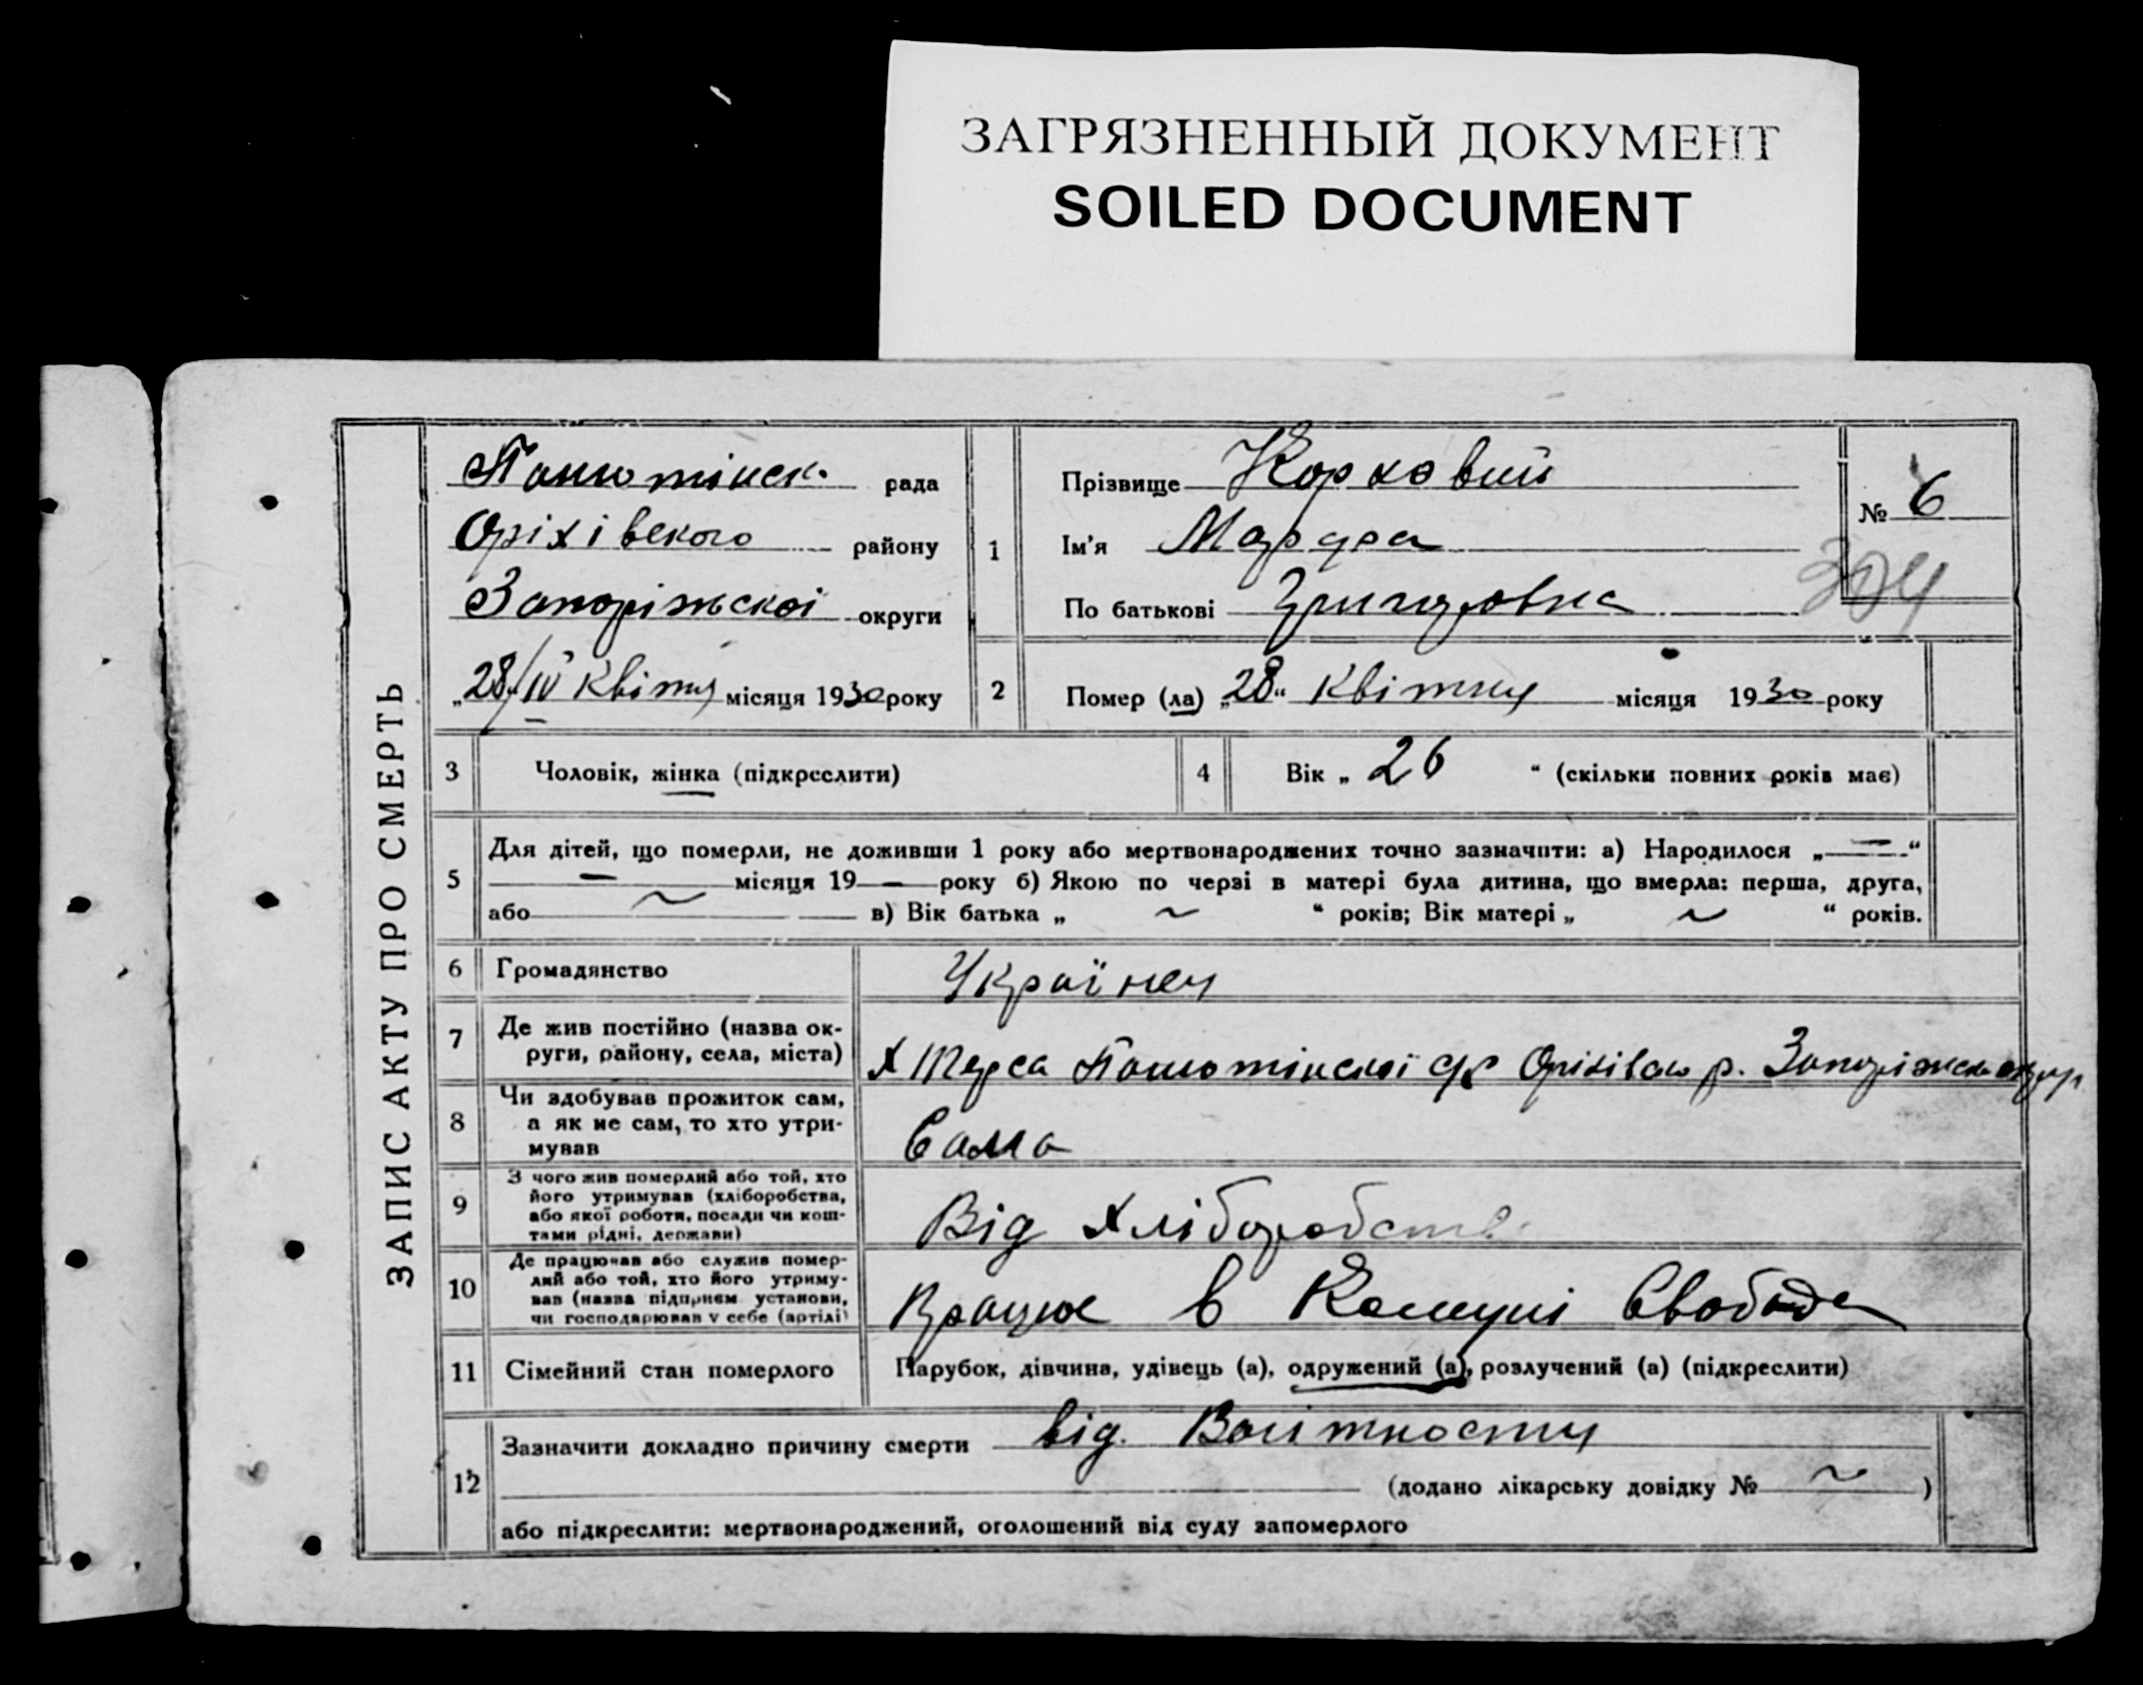 ЗАГРЯЗНЕННЫЙ ДОКУМЕНТ
SOILED DOCUMENT
ЗАПИС АКТУ ПРО СМЕРТЬ
рада
Оріхівского району
Запоріжскої округи
„28/IV Квітня місяця 1930 року
1
Прізвище Корковий
Ім'я Марфа
По батькові Григоровна
№ 6
304
2
Помер (ла) „28“ Квітня місяця 1930 року
3 Чоловік, жінка (підкреслити)
4 Вік „ 26 “ (скільки повних років має)
5 Для дітей, що померли, не доживши 1 року або мертвонароджених точно зазначити: а) Народилося „—“
— місяця 19 — року б) Якою по черзі в матері була дитина, що вмерла: перша, друга,
або ~ в) Вік батька „ ~ “ років; Вік матері „ ~ “ років.
6 Громадянство Українец
7 Де жив постійно (назва ок-
руги, району, села, міста)
х Терса Оріхівськ р. Запоріжск округ
8 Чи здобував прожиток сам,
а як не сам, то хто утри-
мував
Сама
9 З чого жив померлий або той, хто
його утримував (хліборобства,
або якої роботи, посади чи кош-
тами рідні, держави)
Від Хліборобств
10 Де працював або служив помер-
лий або той, хто його утриму-
вав (назва підприєм установи,
чи господарював у себе (артілі)
Працює в Комуні Свобода
11 Сімейний стан померлого Парубок, дівчина, удівець (а), одружений (а), розлучений (а) (підкреслити)
12 Зазначити докладно причину смерти від.
(додано лікарську довідку № ~ )
або підкреслити: мертвонароджений, оголошений від суду запомерлого